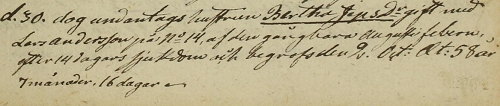 d. 30. dog undantags hustrun Bertha Jeps Dr gift med
Lars Andersson på No 14, af den gångbara Augusti febern,
efter 14 dagars sjukdom och begrofs den 2. Oct. Æt: 58 år
7 månader, 16 dagar